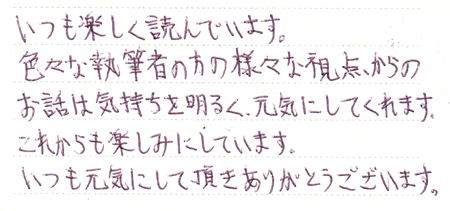 いつも楽しく読んでいます。
色々な執筆者の方の様々な視点からの
お話は気持ちを明るく、元気にしてくれます。
これからも楽しみにしています。
いつも元気にして頂きありがとうございます。